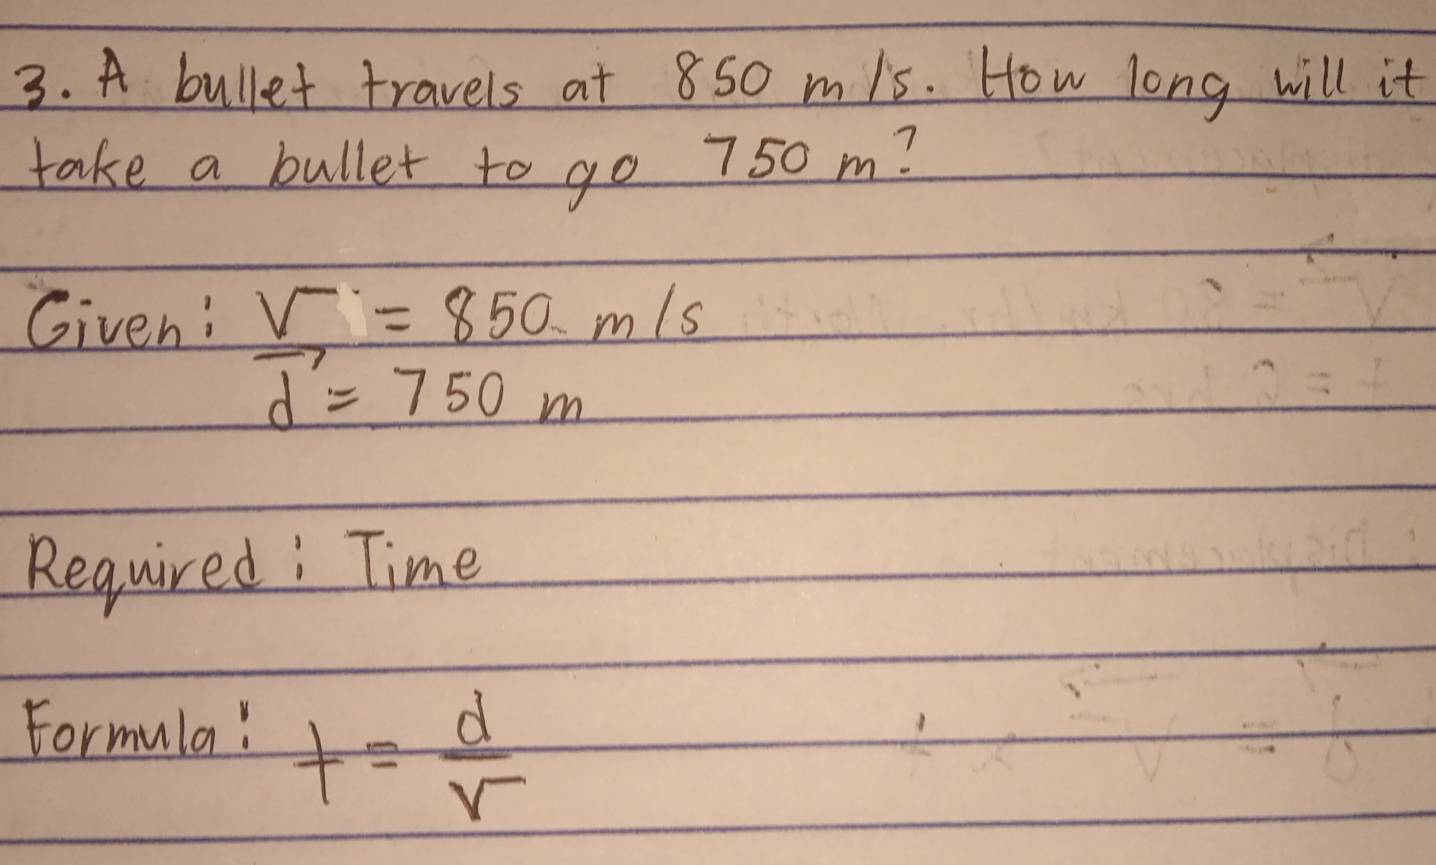 3. A bullet travels at 850 m/s. How long will it
take a bullet to go 750 m?
Given: v = 850 m/s
d⃗ = 750 m
Required: Time
Formula: t = d/v